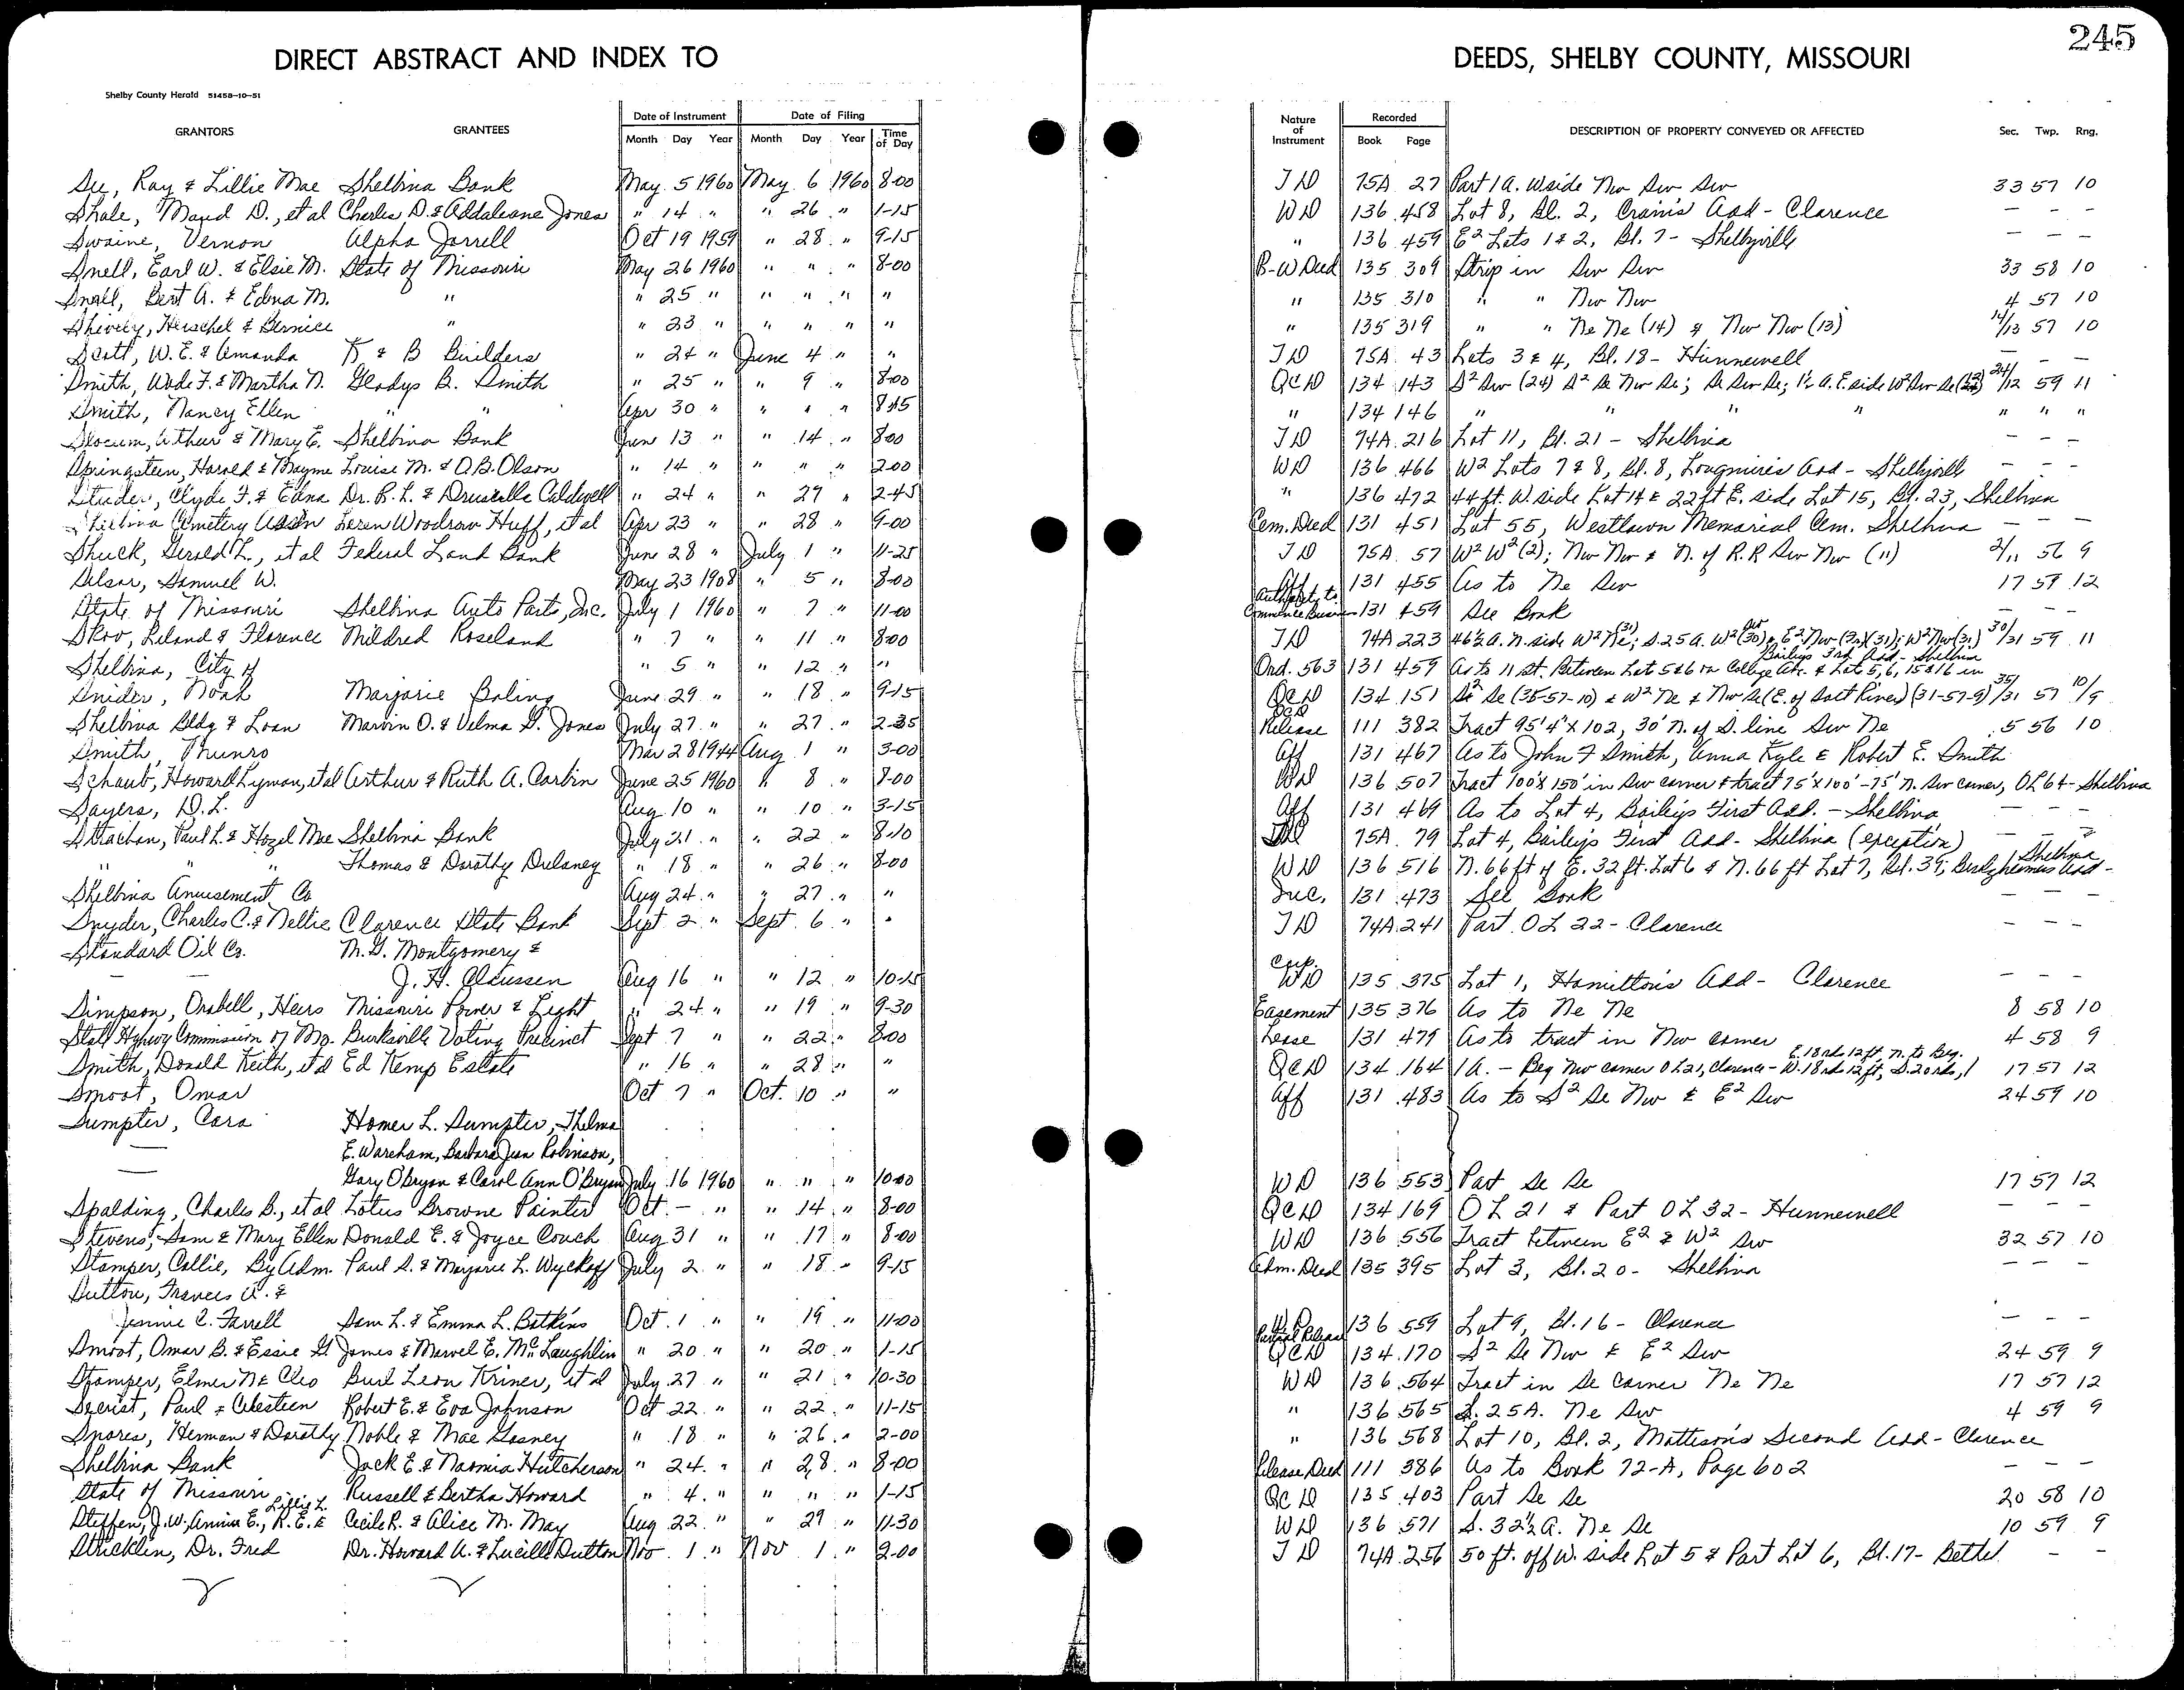 245
DIRECT ABSTRACT AND INDEX TO DEEDS, SHELBY COUNTY, MISSOURI
Shelby County Herald 51458-10-51
GRANTORS GRANTEES Date of Instrument Month Day Year Date of Filing Month Day Year Time of Day Nature of Instrument Recorded Book Page DESCRIPTION OF PROPERTY CONVEYED OR AFFECTED Sec. Twp. Rng.
See, Ray & Lillie Mae Shelbina Bank May 5 1960 May 6 1960 8-00 TD 75A 27 Part 1A. W side Nw Sw Sw 33 57 10
Shale, Maud D., et al Charles D. & Addaleane Jones " 14 " " 26 " 1-15 WD 136 458 Lot 8, Bl. 2, Crain's Add - Clarence — — —
Swaine, Vernon Alpha Jarrell Oct 19 1959 " 28 " 9-15 " 136 459 E2 Lots 1 & 2, Bl. 7 - Shelbyville — — —
Snell, Earl W. & Elsie M. State of Missouri May 26 1960 " " " 8-00 R-W Deed 135 309 Strip in Sw Sw 33 58 10
Snell, Bert A. & Edna M. " " 25 " " " " " " 135 310 " " Nw Nw 4 57 10
Shively, Herschel & Bernice " " 23 " " " " " " 135 319 " " Ne Ne (14) & Nw Nw (13) 14/13 57 10
Scott, W. E. & Amanda K & B Builders " 24 " June 4 " " TD 75A 43 Lots 3 & 4, Bl. 18 - Hunnewell — — —
Smith, Wade F. & Martha N. Gladys B. Smith " 25 " " 9 " 8-00 QCD 134 143 S2 Sw (24) S2 Se Nw Se; Se Sw Se; 1½ A. E. side W2 Sw Se 24/12 59 11
Smith, Nancy Ellen " " Apr 30 " " " " 8-45 " 134 146 " " " " " " "
Slocum, Arthur & Mary E. Shelbina Bank June 13 " " 14 " 8-00 TD 74A 216 Lot 11, Bl. 21 - Shelbina — — —
Springsteen, Harold & Mayme Louise M. & O.B. Olson " 14 " " " " 2-00 WD 136 466 W2 Lots 7 & 8, Bl. 8, Longmire's Add - Shelbyville — — —
Studer, Clyde F. & Edna Dr. R. L. & Druscelle Caldwell " 24 " " 27 " 2-45 " 136 472 44 ft. W side Lot 14 & 22 ft E. side Lot 15, Bl. 23, Shelbina
Shelbina Cemetery Ass'n Loren Woodrow Huff, et al Apr 23 " " 28 " 9-00 Cem. Deed 131 451 Lot 55, Westlawn Memorial Cem. Shelbina — — —
Shuck, Gerald L., et al Federal Land Bank June 28 " July 1 " 11-25 TD 75A 57 W2 W2 (2); Nw Nw & N. of R.R Sw Nw (11) 2/11 56 9
Selsor, Samuel W. May 23 1908 " 5 " 8-00 Aff 131 455 As to Ne Sw 17 59 12
State of Missouri Shelbina Auto Parts, Inc. July 1 1960 " 7 " 11-00 Commence Business 131 459 See Book — — —
Skov, Leland & Florence Mildred Roseland " 7 " " 11 " 8-00 TD 74A 223 46½ A. N. side W2 Ne (31); S. 25 A. W2 Sw (30) & E2 Nw (31); W2 Nw (31) 30/31 59 11
Shelbina, City of " 5 " " 12 " " Ord. 563 131 459 As to 11 St. Between Lot 5 & 6 on College Ave. & Lot 5, 6, 15 & 16 in Bailey's 3rd Add - Shelbina
Snider, Noah Marjorie Boling June 29 " " 18 " 9-15 QCD 134 151 S2 Se (35-57-10) & W2 Ne & Nw Se (E. of Salt River) (31-57-9) 35/31 57 10/9
Shelbina Bldg & Loan Marvin O. & Velma G. Jones July 27 " " 27 " 2-35 QCD Release 111 382 Tract 95'4" X 102, 30' N. of S. line Sw Ne 5 56 10
Smith, Munro Mar 28 1944 Aug 1 " 3-00 Aff 131 467 As to John F Smith, Anna Kyle & Robert E. Smith
Schaub, Howard Lyman, et al Arthur & Ruth A. Corbin June 25 1960 " 8 " 8-00 WD 136 507 Tract 100' X 150' in Sw corner & tract 75' X 100' - 75' N. Sw corner, OL 64 - Shelbina
Sayers, D. L. Aug 10 " " 10 " 3-15 Aff 131 469 As to Lot 4, Bailey's First Add. - Shelbina — — —
Strachan, Paul L. & Hazel Mae Shelbina Bank July 21 " " 22 " 8-10 TD 75A 79 Lot 4, Bailey's First Add - Shelbina (exception) — — —
" " Thomas & Dorothy Dulaney " 18 " " 26 " 8-00 WD 136 516 N. 66 ft of E. 32 ft. Lot 6 & N. 66 ft Lot 7, Bl. 39, Add - Shelbina
Shelbina Amusement Co Aug 24 " " 27 " " Inc. 131 473 See Book — — —
Snyder, Charles C. & Nellie Clarence State Bank Sept 2 " Sept. 6 " " TD 74A 241 Part OL 22 - Clarence — — —
Standard Oil Co. M. G. Montgomery &
— — J. H. Claussen Aug 16 " " 12 " 10-15 Corp. WD 135 375 Lot 1, Hamilton's Add - Clarence — — —
Simpson, Orabell, Heirs Missouri Power & Light " 24 " " 19 " 9-30 Easement 135 376 As to Ne Ne 8 58 10
State Highway Commission of Mo. Burksville Voting Precinct Sept 7 " " 22 " 8-00 Lease 131 479 As to tract in Nw corner 4 58 9
Smith, Donald Keith, et al Ed Kemp Estate " 16 " " 28 " " QCD 134 164 1A. - Beg Nw corner OL 21, Clarence - W. 18 rds 12 ft, S. 20 rds, E. 18 rds 12 ft, N. to Beg. 17 57 12
Smoot, Omar Oct 7 " Oct. 10 " " Aff 131 483 As to S2 Se Nw & E2 Sw 24 59 10
Sumpter, Cora Homer L. Sumpter, Thelma
— E. Wareham, Barbara Jean Robinson,
— Gary O'Bryan & Carol Ann O'Bryan July 16 1960 " " " 10-00 WD 136 553 Part Se Se 17 57 12
Spalding, Charles B., et al Lotus Browne Painter Oct. — " " 14 " 8-00 QCD 134 169 OL 21 & Part OL 32 - Hunnewell — — —
Stevens, Sam & Mary Ellen Donald E. & Joyce Couch Aug 31 " " 17 " 8-00 WD 136 556 Tract between E2 & W2 Sw 32 57 10
Stamper, Collie, By Adm. Paul S. & Marjorie L. Wyckoff July 2 " " 18 " 9-15 Adm. Deed 135 395 Lot 3, Bl. 20 - Shelbina — — —
Sutton, Frances A. &
Jennie C. Farrell Sam L. & Emma L. Botkins Oct. 1 " " 19 " 11-00 WD 136 559 Lot 9, Bl. 16 - Clarence — — —
Smoot, Omar B. & Essie G. James & Marvel E. McLaughlin " 20 " " 20 " 1-15 Partial Release QCD 134 170 S2 Se Nw & E2 Sw 24 59 9
Stamper, Elmer N & Cleo Burl Leon Kriner, et al July 27 " " 21 " 10-30 WD 136 564 Tract in Se corner Ne Ne 17 57 12
Secrist, Paul & Celesteen Robert E. & Eva Johnson Oct 22 " " 22 " 11-15 " 136 565 S. 25A. Ne Sw 4 59 9
Snores, Herman & Dorothy Noble & Mae Gosney " 18 " " 26 " 2-00 " 136 568 Lot 10, Bl. 2, Mattison's Second Add - Clarence
Shelbina Bank Jack E. & Naomia Hutcherson " 24 " " 28 " 8-00 Release Deed 111 386 As to Book 72-A, Page 602 — — —
State of Missouri Russell & Bertha Howard " 4 " " " " 1-15 QCD 135 403 Part Se Se 20 58 10
Steffen, J. W., Annie E., R. E. & Lillie L. Cecil R. & Alice M. May Aug 22 " " 29 " 11-30 WD 136 571 S. 32½ A. Ne Se 10 59 9
Stricklin, Dr. Fred Dr. Howard A. & Lucille Dutton Nov 1 " Nov 1 " 2-00 TD 74A 256 50 ft. off W. side Lot 5 & Part Lot 6, Bl. 17 - Bethel — —